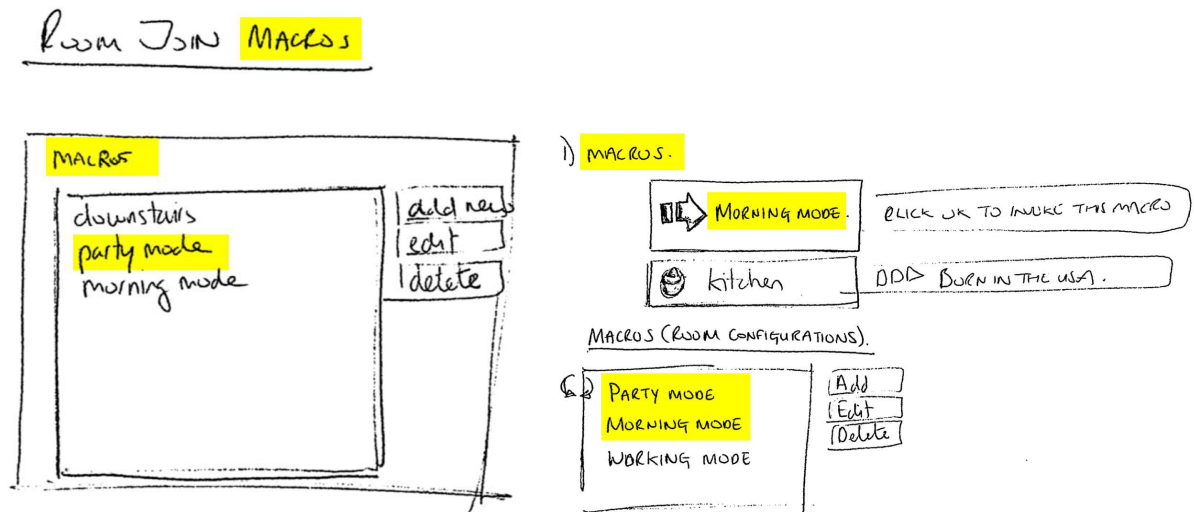 ROOM JOIN MACROS
MACROS
downstairs
party mode
morning mode
add new
edit
delete
1) MACROS.
MORNING MODE.
CLICK OK TO INVOKE THIS MACRO
kitchen
BORN IN THE USA.
MACROS (ROOM CONFIGURATIONS).
PARTY MODE
MORNING MODE
WORKING MODE
Add
Edit
Delete